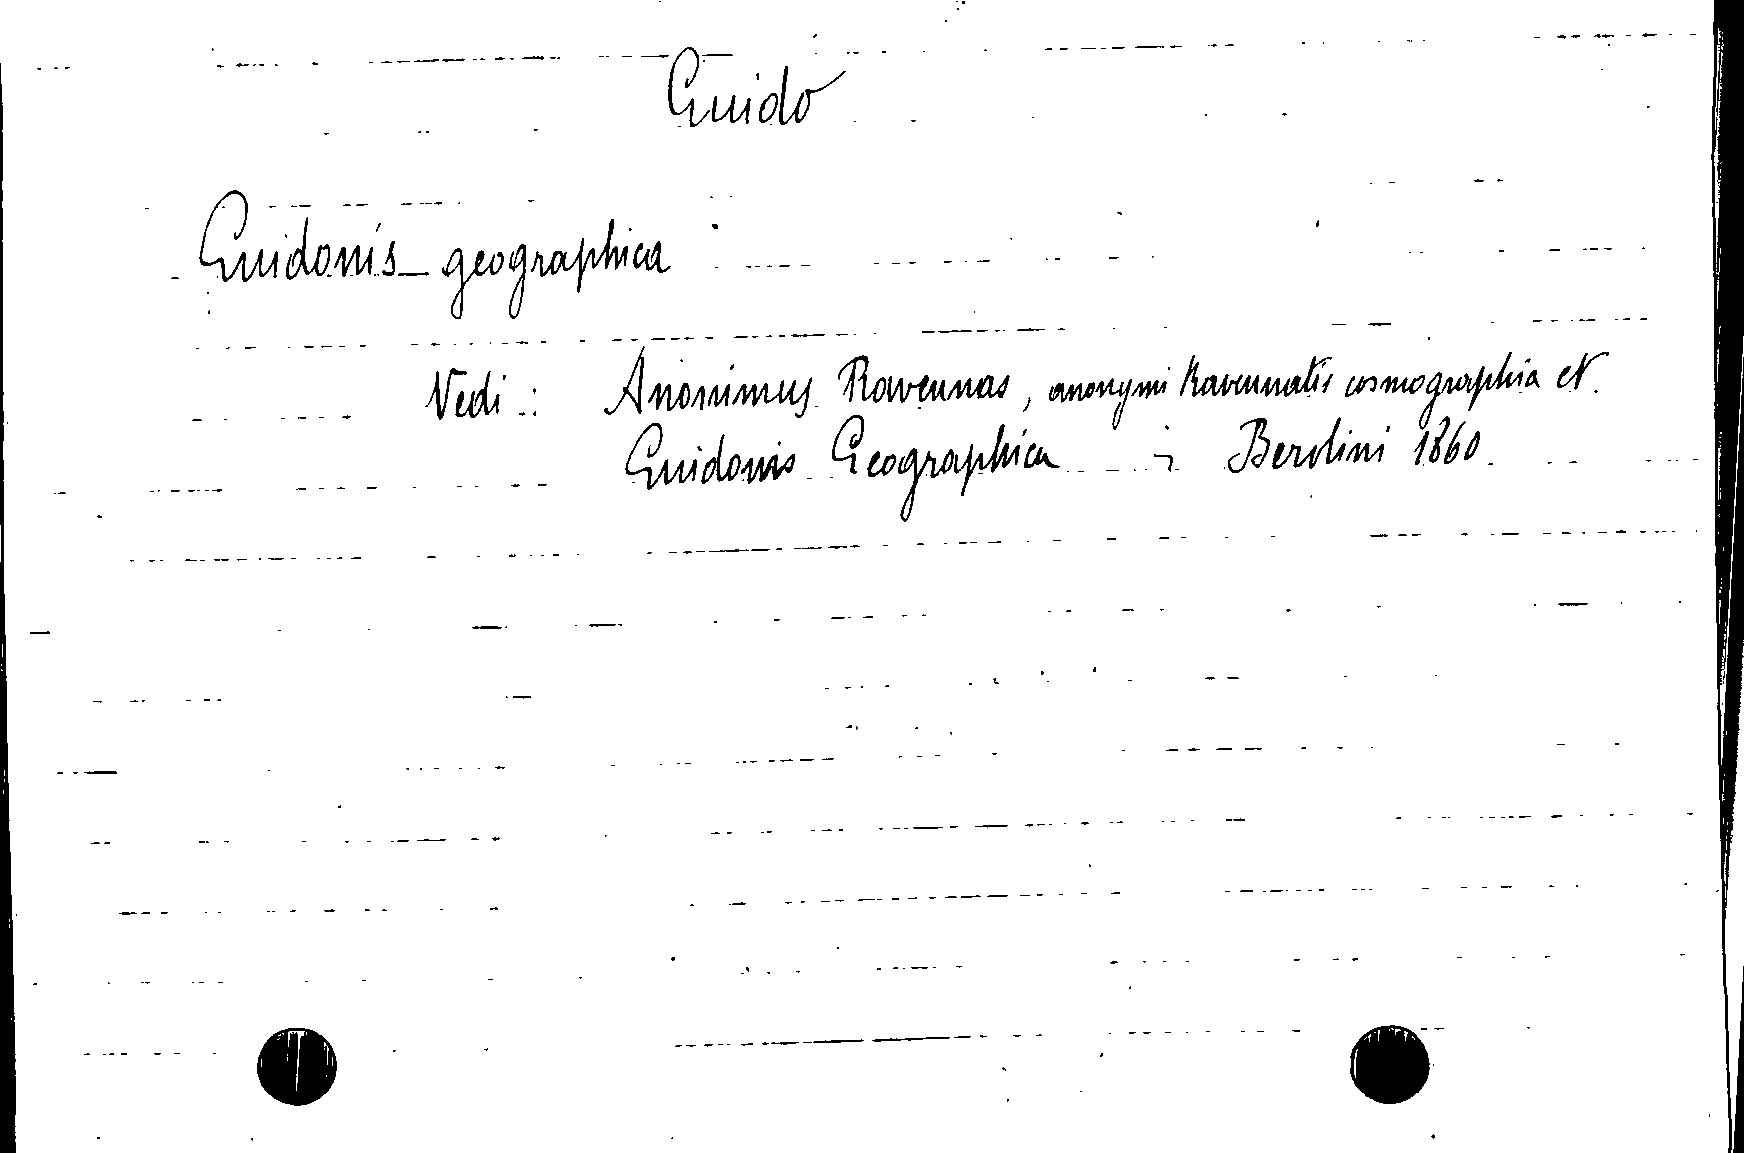 Guido
Guidonis geographica
Vedi: Anonimus Ravennas, anonymi Ravennatis cosmographia et
Guidonis Geographica ; Berolini 1860